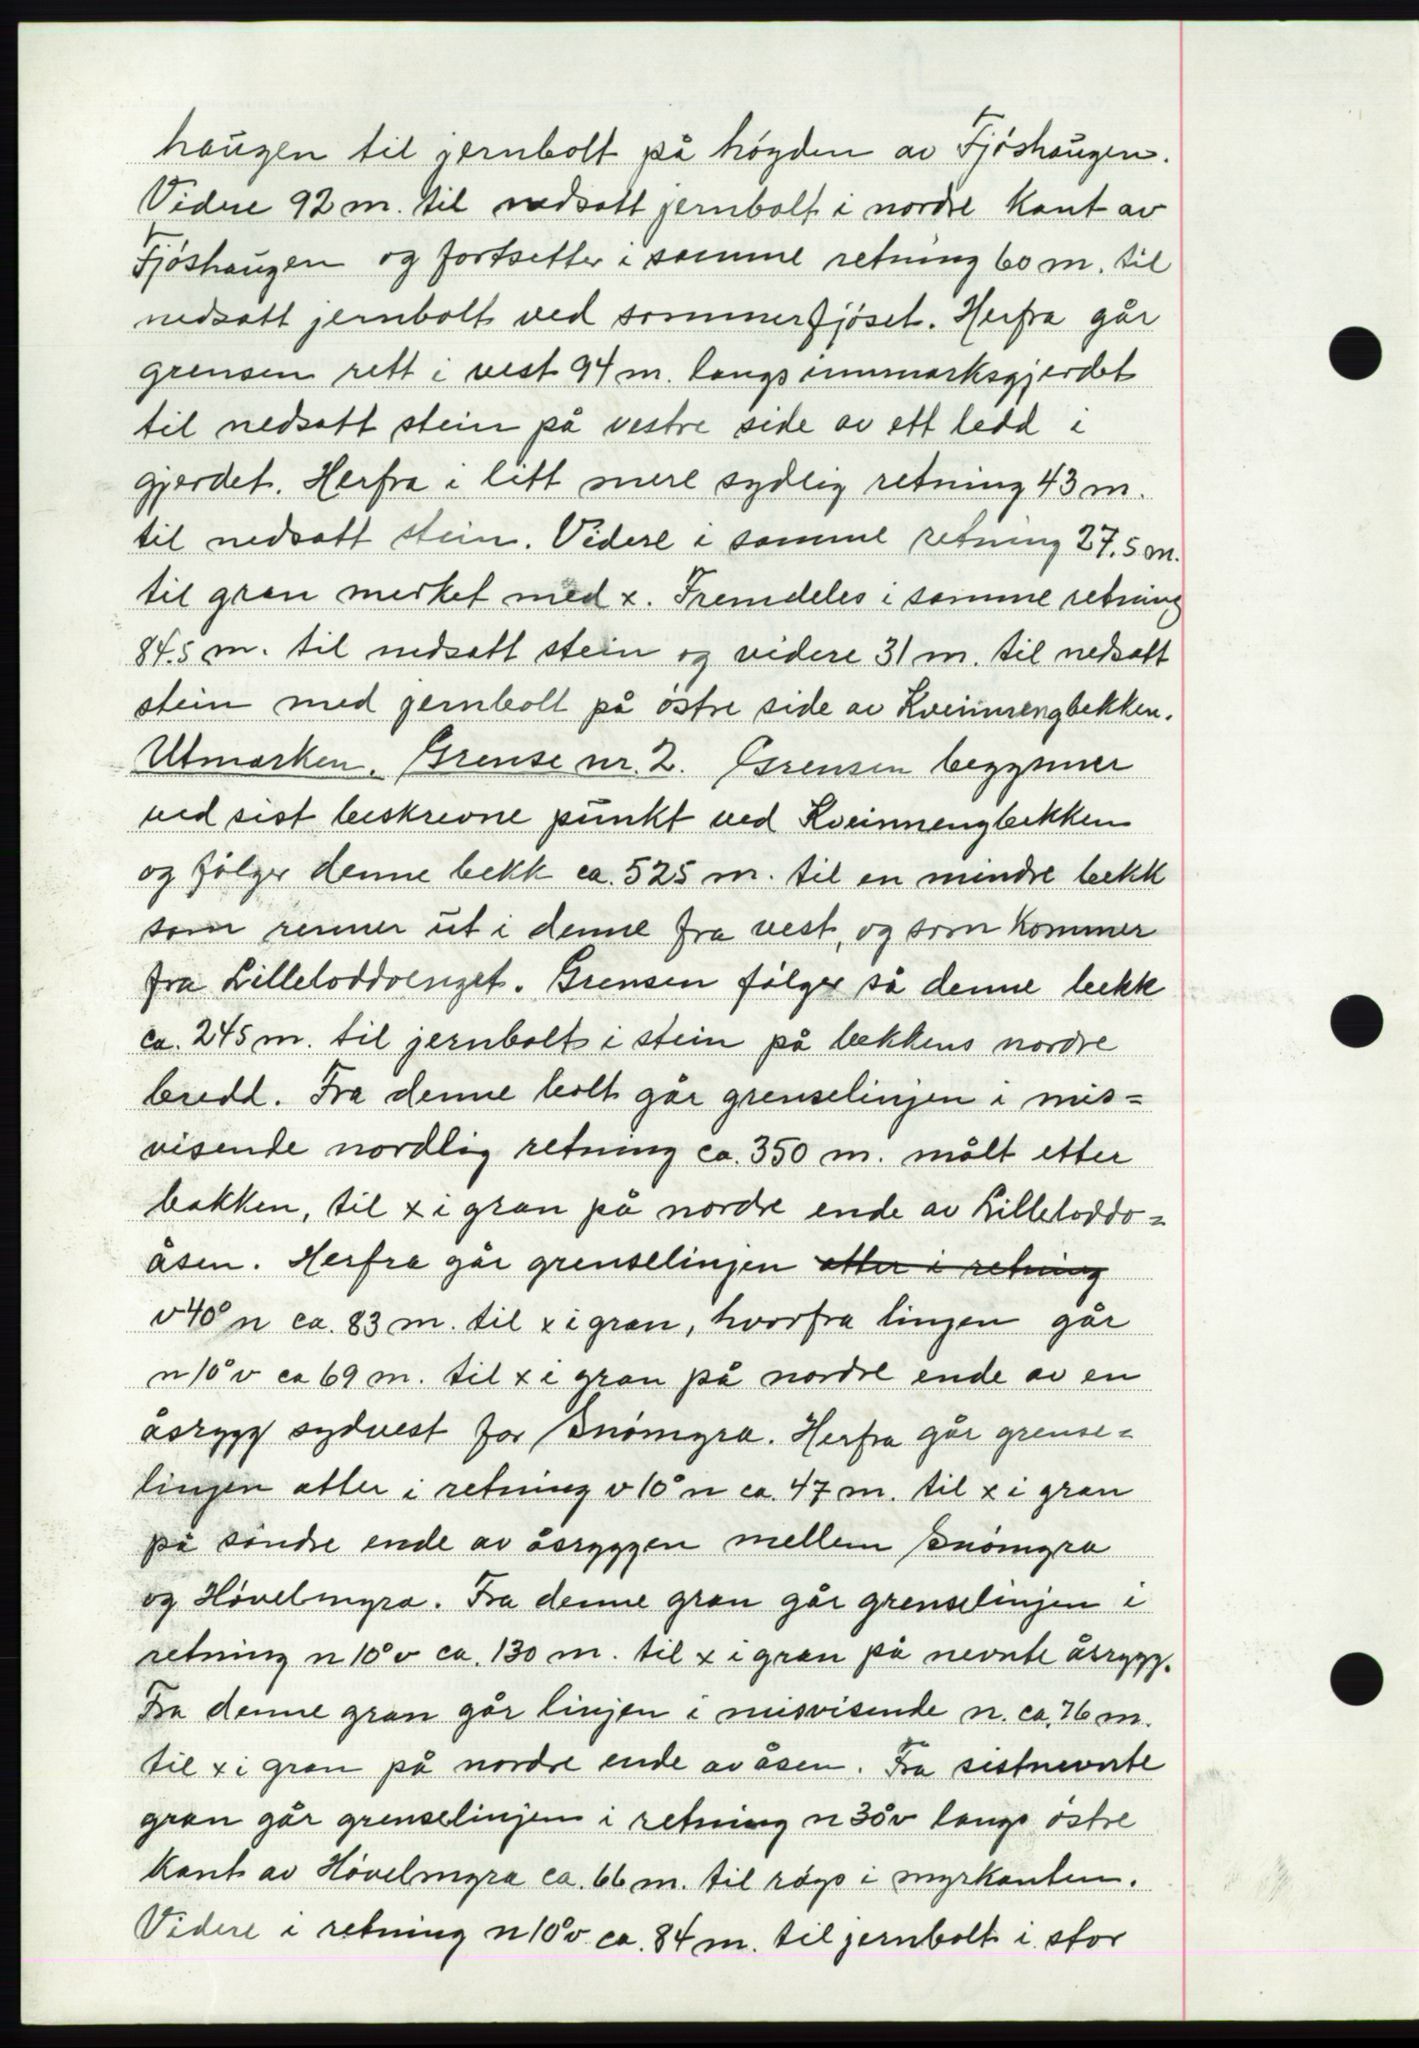 haugen til jernbolt på høyden av Fjøshaugen.
Videre 92 m. til nedsatt jernbolt i nordre kant av
Fjøshaugen og fortsetter i samme retning 60 m. til
nedsatt jernbolt ved sommerfjøset. Herfra går
grensen rett i vest 94 m. langs innmarksgjerdet
til nedsatt stein på vestre side av ett ledd i
gjerdet. Herfra i litt mere sydlig retning 43 m.
til nedsatt stein. Videre i samme retning 27.5 m.
til gran merket med x. Fremdeles i samme retning
84.5 m. til nedsatt stein og videre 31 m. til nedsatt
stein med jernbolt på østre side av Kveinnengbekken.
Utmarken. Grense nr. 2. Grensen begynner
ved sist beskrevne punkt ved Kveinnengbekken
og følger denne bekk ca. 525 m. til en mindre bekk
som renner ut i denne fra vest, og som kommer
fra Lilleloddoenget. Grensen følger så denne bekk
ca. 245 m. til jernbolt i stein på bekkens nordre
bredd. Fra denne bolt går grenselinjen i mis=
visende nordlig retning ca. 350 m. målt etter
bakken, til x i gran på nordre ende av Lilleloddo=
åsen. Herfra går grenselinjen atter i retning
v 40° n ca. 83 m. til x i gran, hvorfra linjen går
n 10° v ca 69 m. til x i gran på nordre ende av en
åsrygg sydvest for Snømyra. Herfra går grense=
linjen atter i retning v 10° n ca. 47 m. til x i gran
på søndre ende av åsryggen mellem Snømyra
og Høvelmyra. Fra denne gran går grenselinjen i
retning n 10° v ca. 130 m. til x i gran på nevnte åsrygg.
Fra denne gran går linjen i misvisende n. ca. 76 m.
til x i gran på nordre ende av åsen. Fra sistnevnte
gran går grenselinjen i retning n 30° v langs østre
kant av Høvelmyra ca. 66 m. til røys i myrkanten.
Videre i retning n 10° v ca. 84 m. til jernbolt i stor